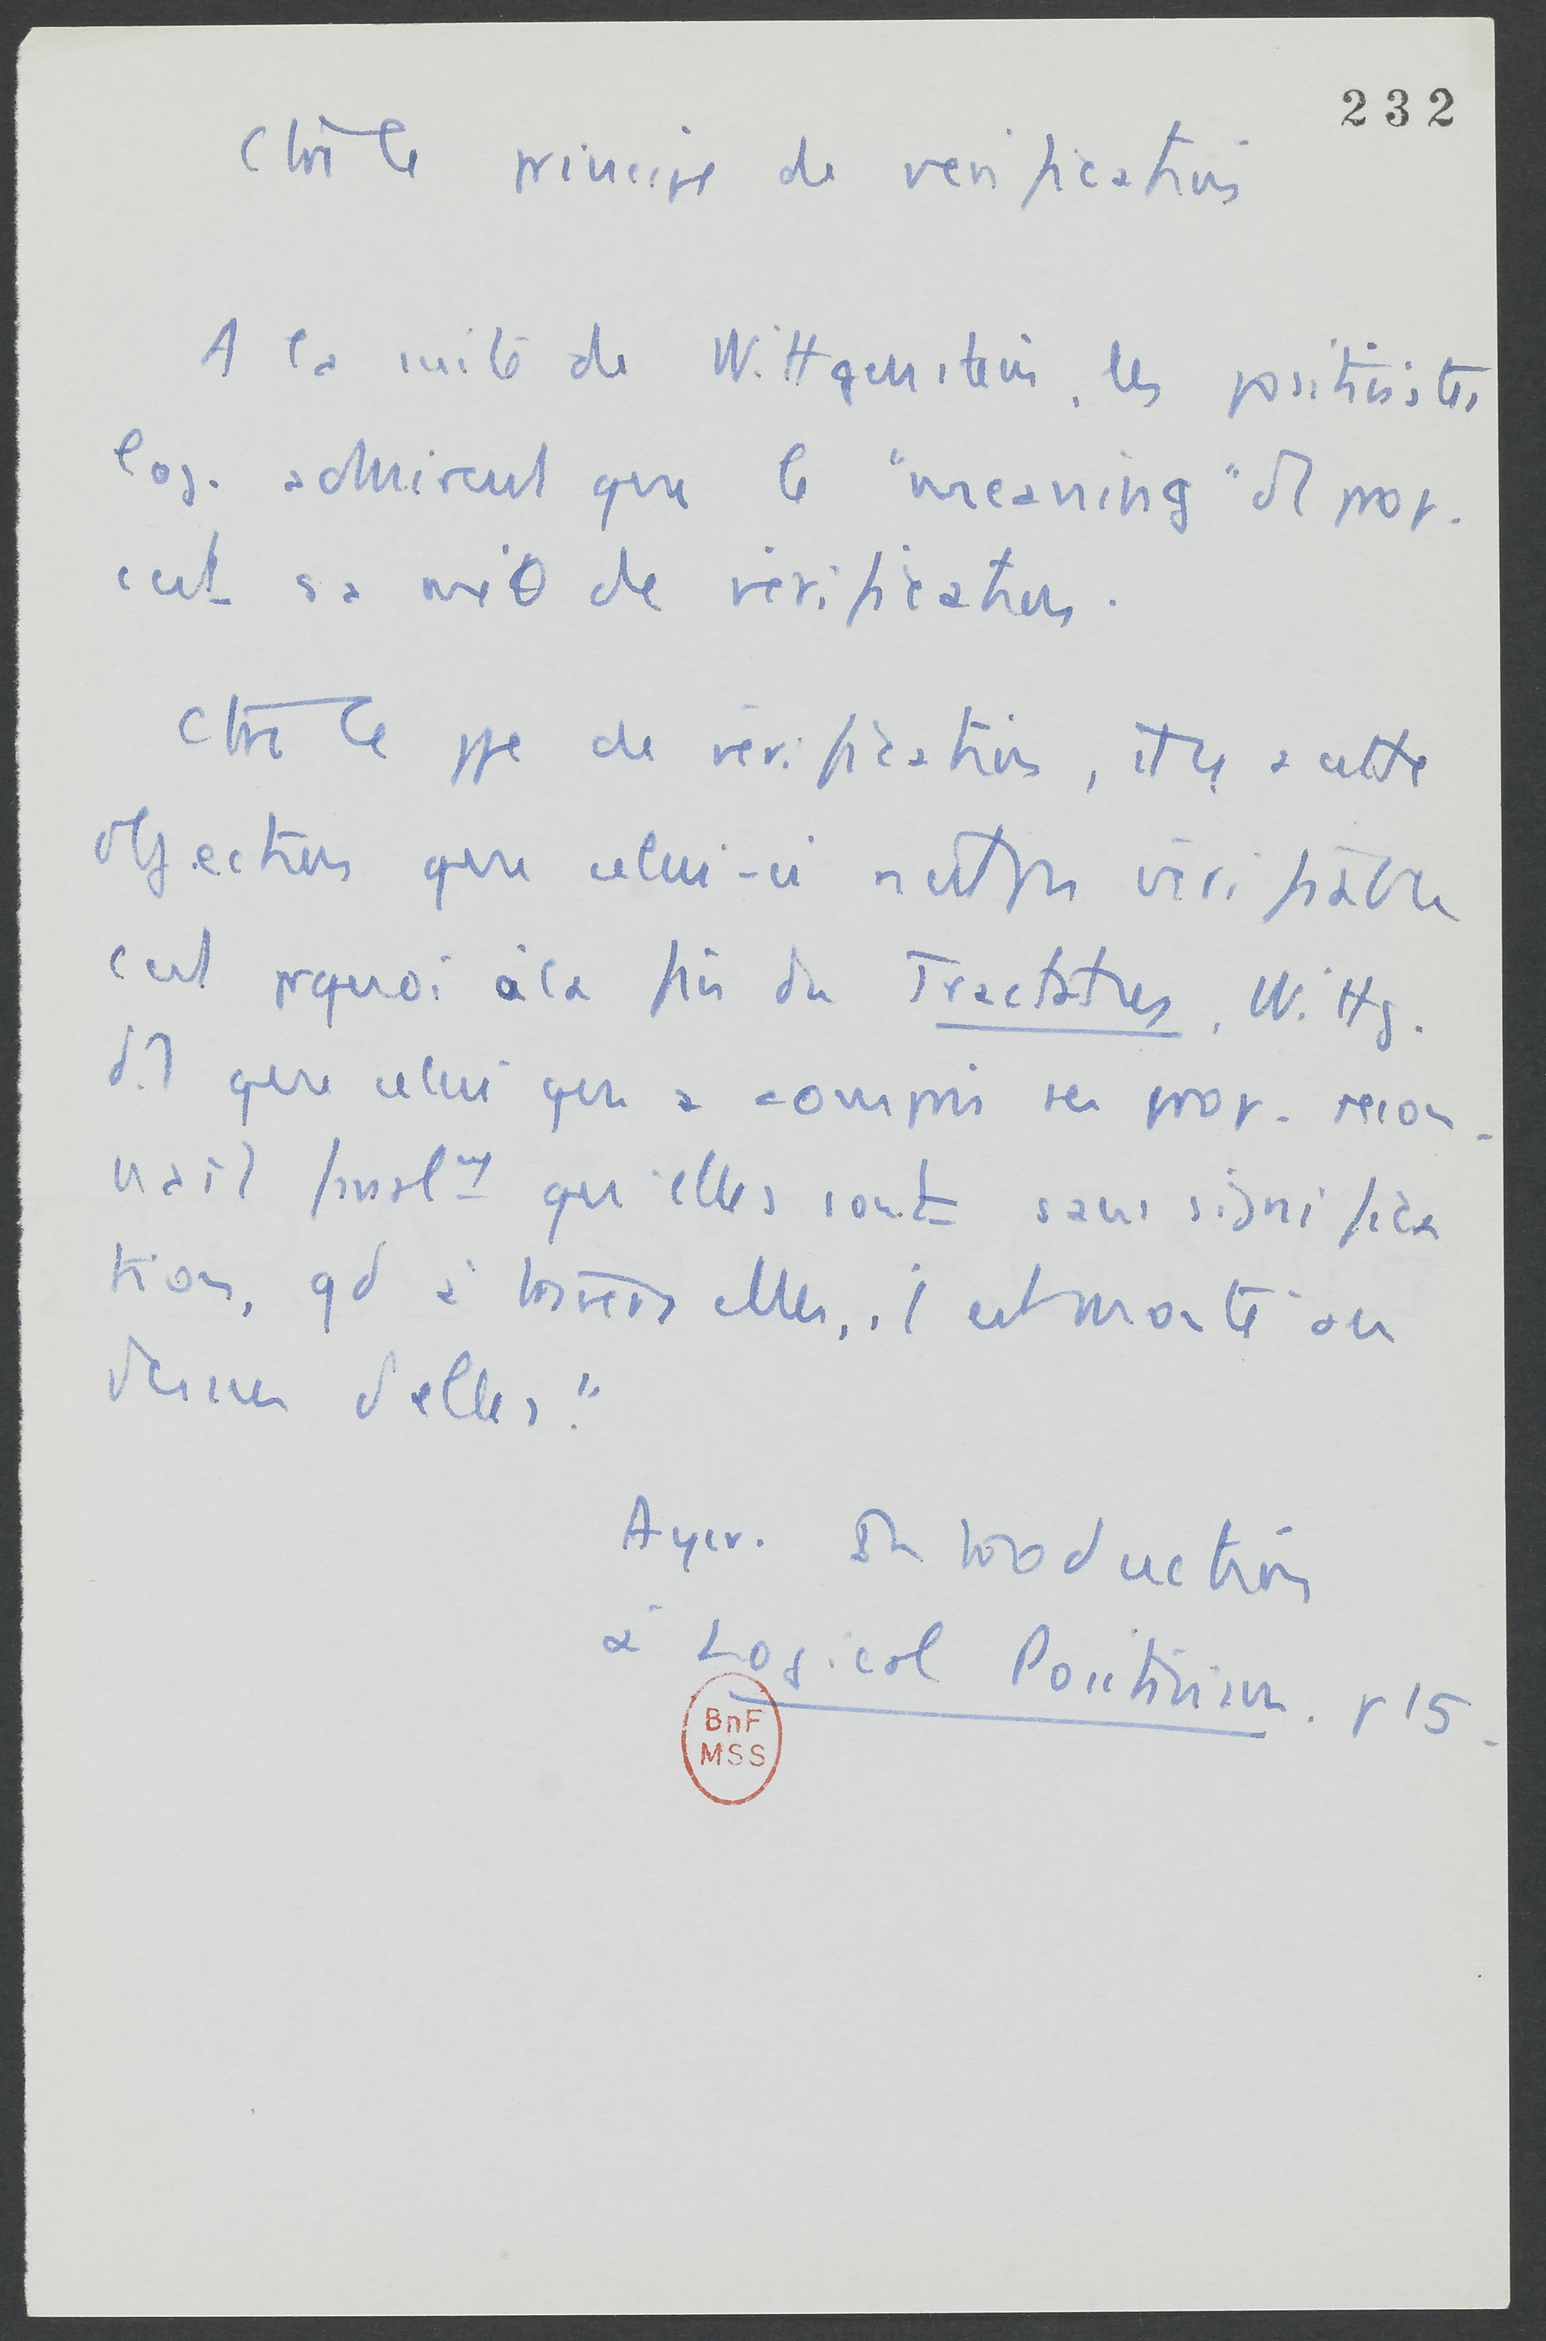 232
Ctre le principe de verification
A la suite de Wittgenstein, les positivistes
log. admirent que le "meaning" d'1 prop.
c'est sa méθ de vérification.
Ctre le ppe de vérification, il y a cette
objection que celui-ci n'est pas vérifiable
c'est pquoi à la fin du Tractatus, Wittg.
dit que celui qui a compris ses prop. recon-
nait finalmt qu'elles sont sans significa
tion, qd à travers elles, il est monté au
dessus d'elles."
Ayer. Introduction
à Logical Positivism. p 15.
BnF
MSS